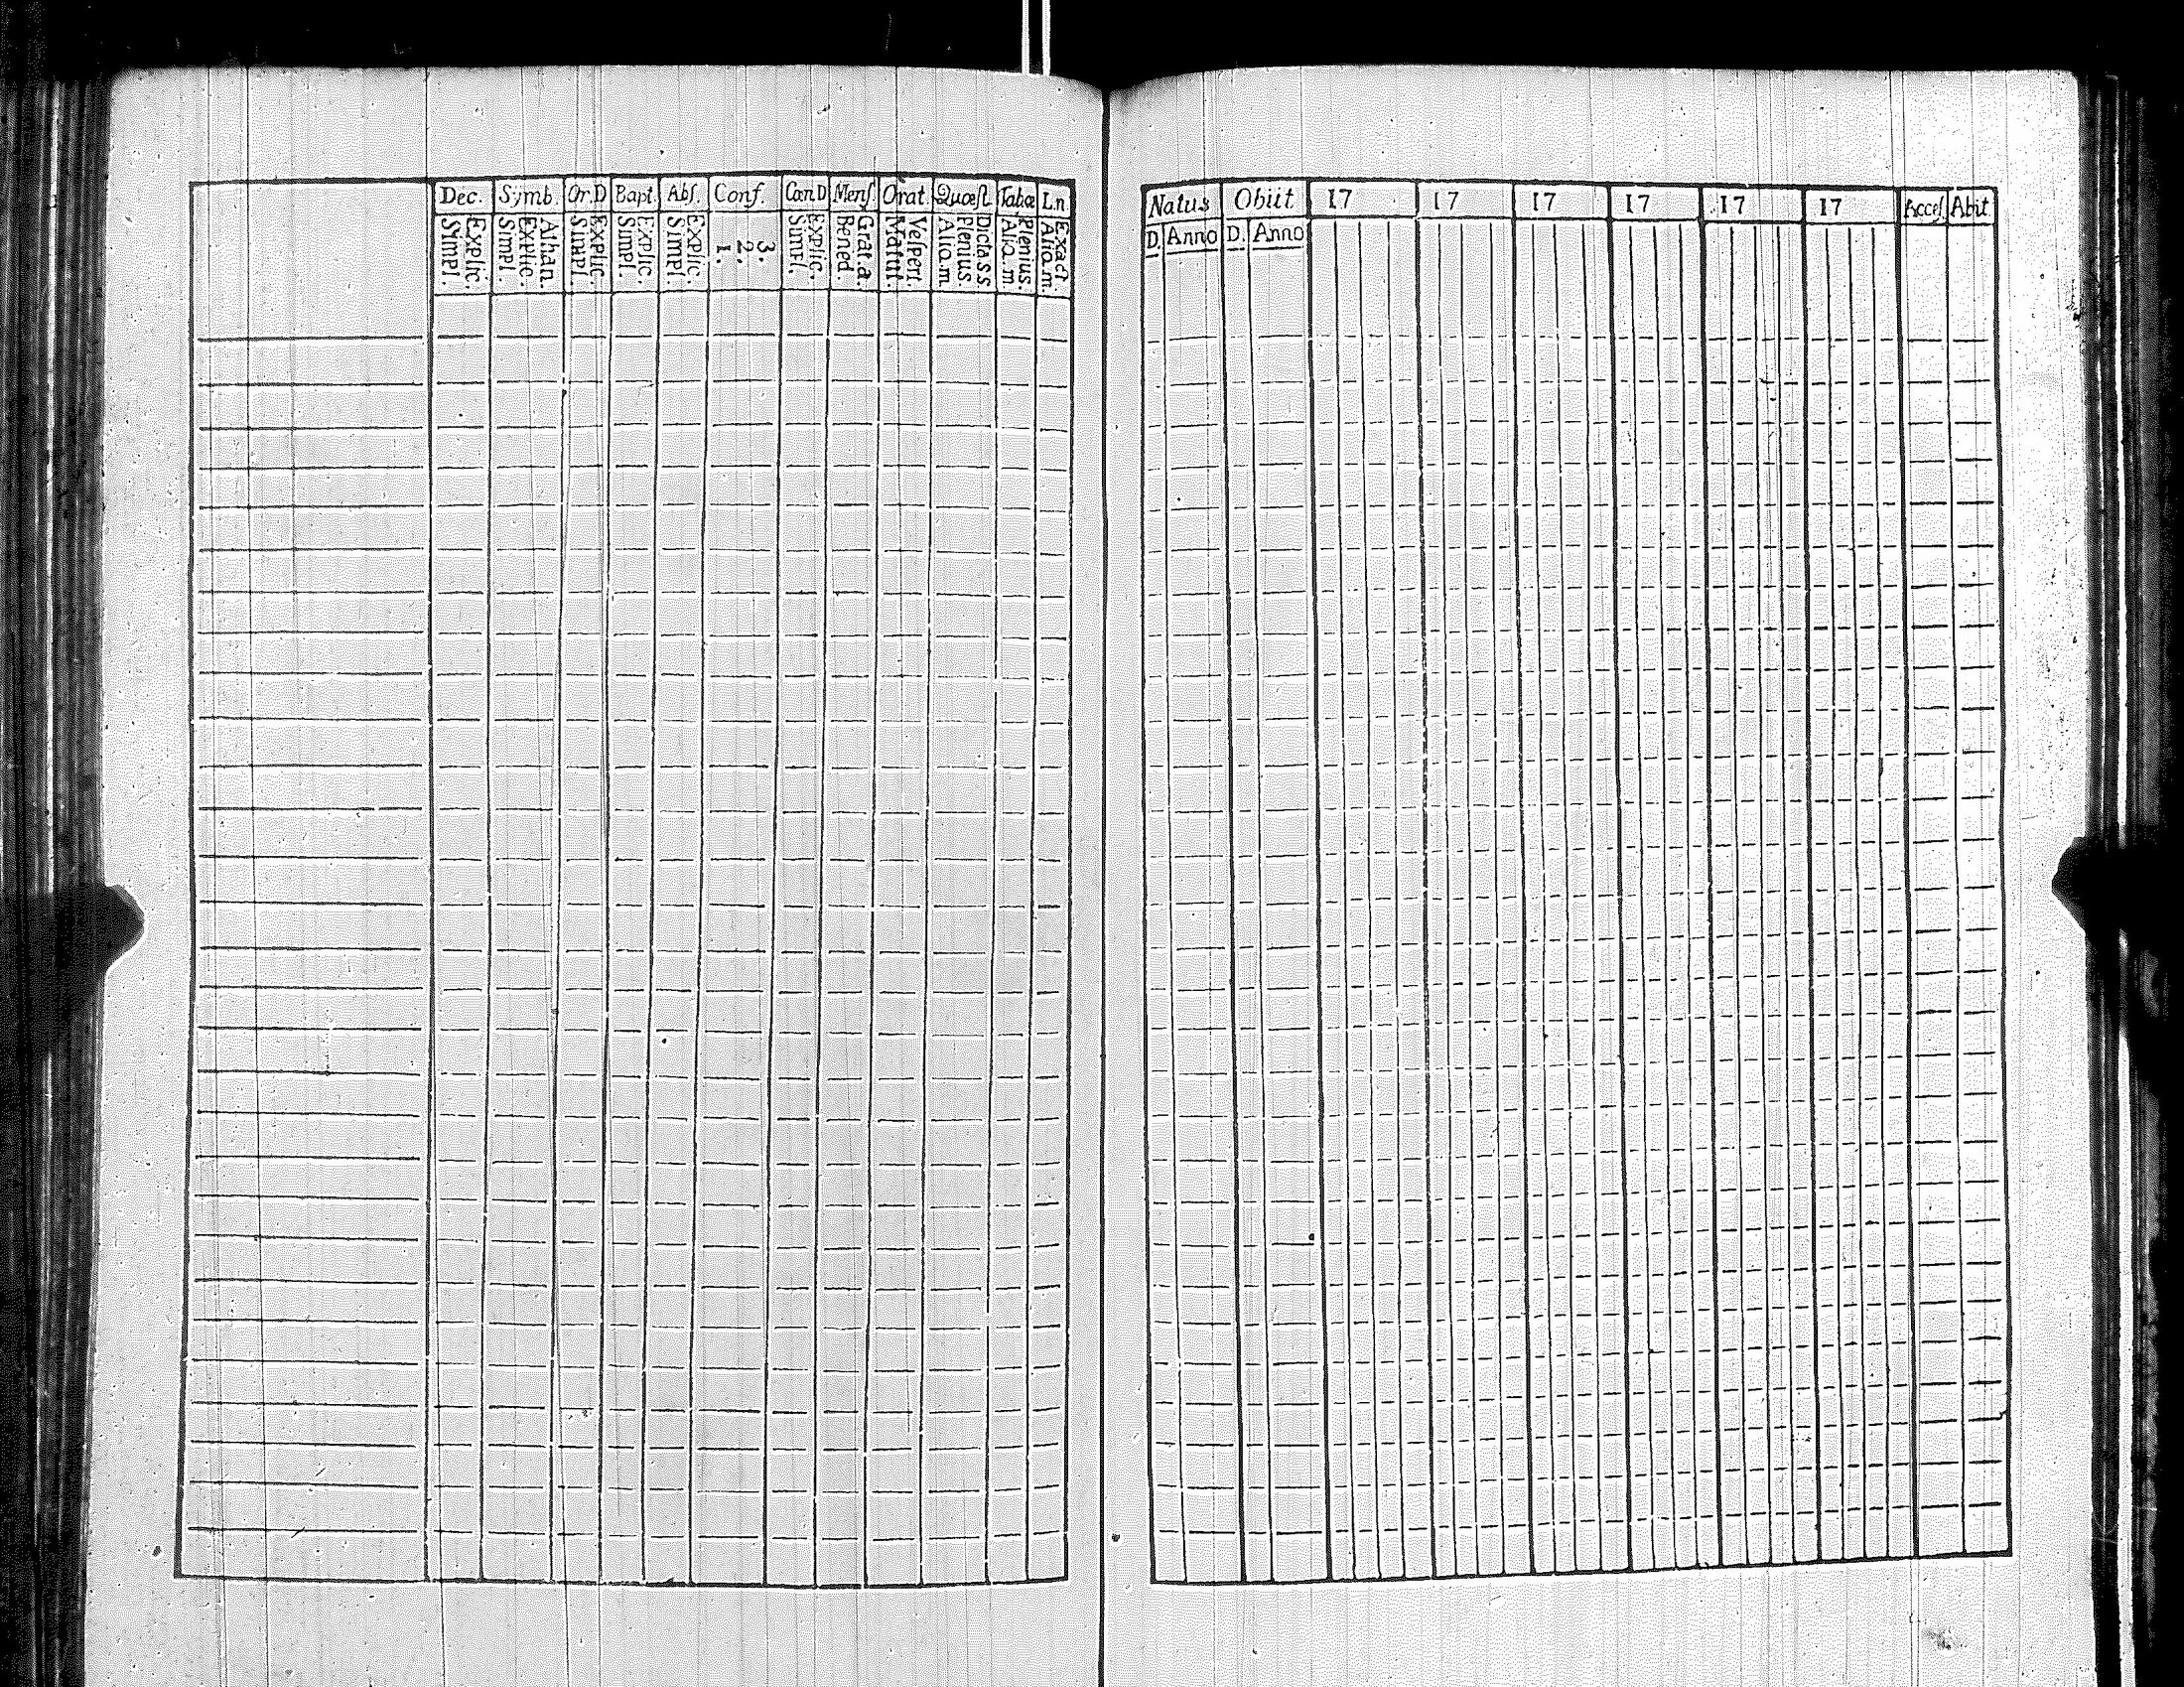 Dec. Symb. Or.D Bapt. Abſ. Conf. Cœn.D Menſ. Orat. Quæſt. Tabæ L.n
Explic. Simpl. Athan. Explic. Simpl. Explic. Simpl. Explic. Simpl. Explic. Simpl. 3. 2. 1. Explic. Simpl. Grat.a. Bened. Veſpert. Matut. Dicta SS Plenius. Aliq.m. Plenius. Aliq.m. Exact. Aliq.m.
Natus Obiit 17 17 17 17 17 17 Acceſ. Abiit
D. Anno D. Anno